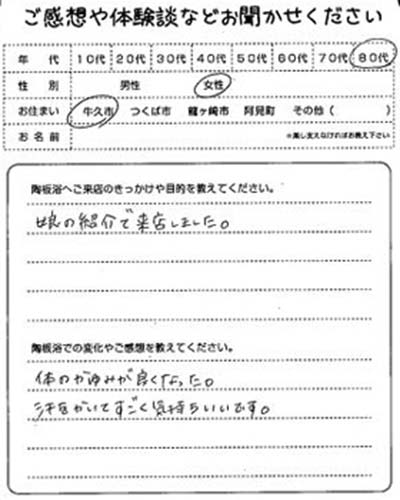 ご感想や体験談などお聞かせください
年代 10代 20代 30代 40代 50代 60代 70代 80代
性別 男性 女性
お住まい 牛久市 つくば市 龍ヶ崎市 阿見町 その他( )
お名前 ※差し支えなければお教え下さい
陶板浴へご来店のきっかけや目的を教えてください。
娘の紹介で来店しました。
陶板浴での変化やご感想を教えてください。
体のかゆみが良くなった。
汗をかいてすごく気持ちいいです。